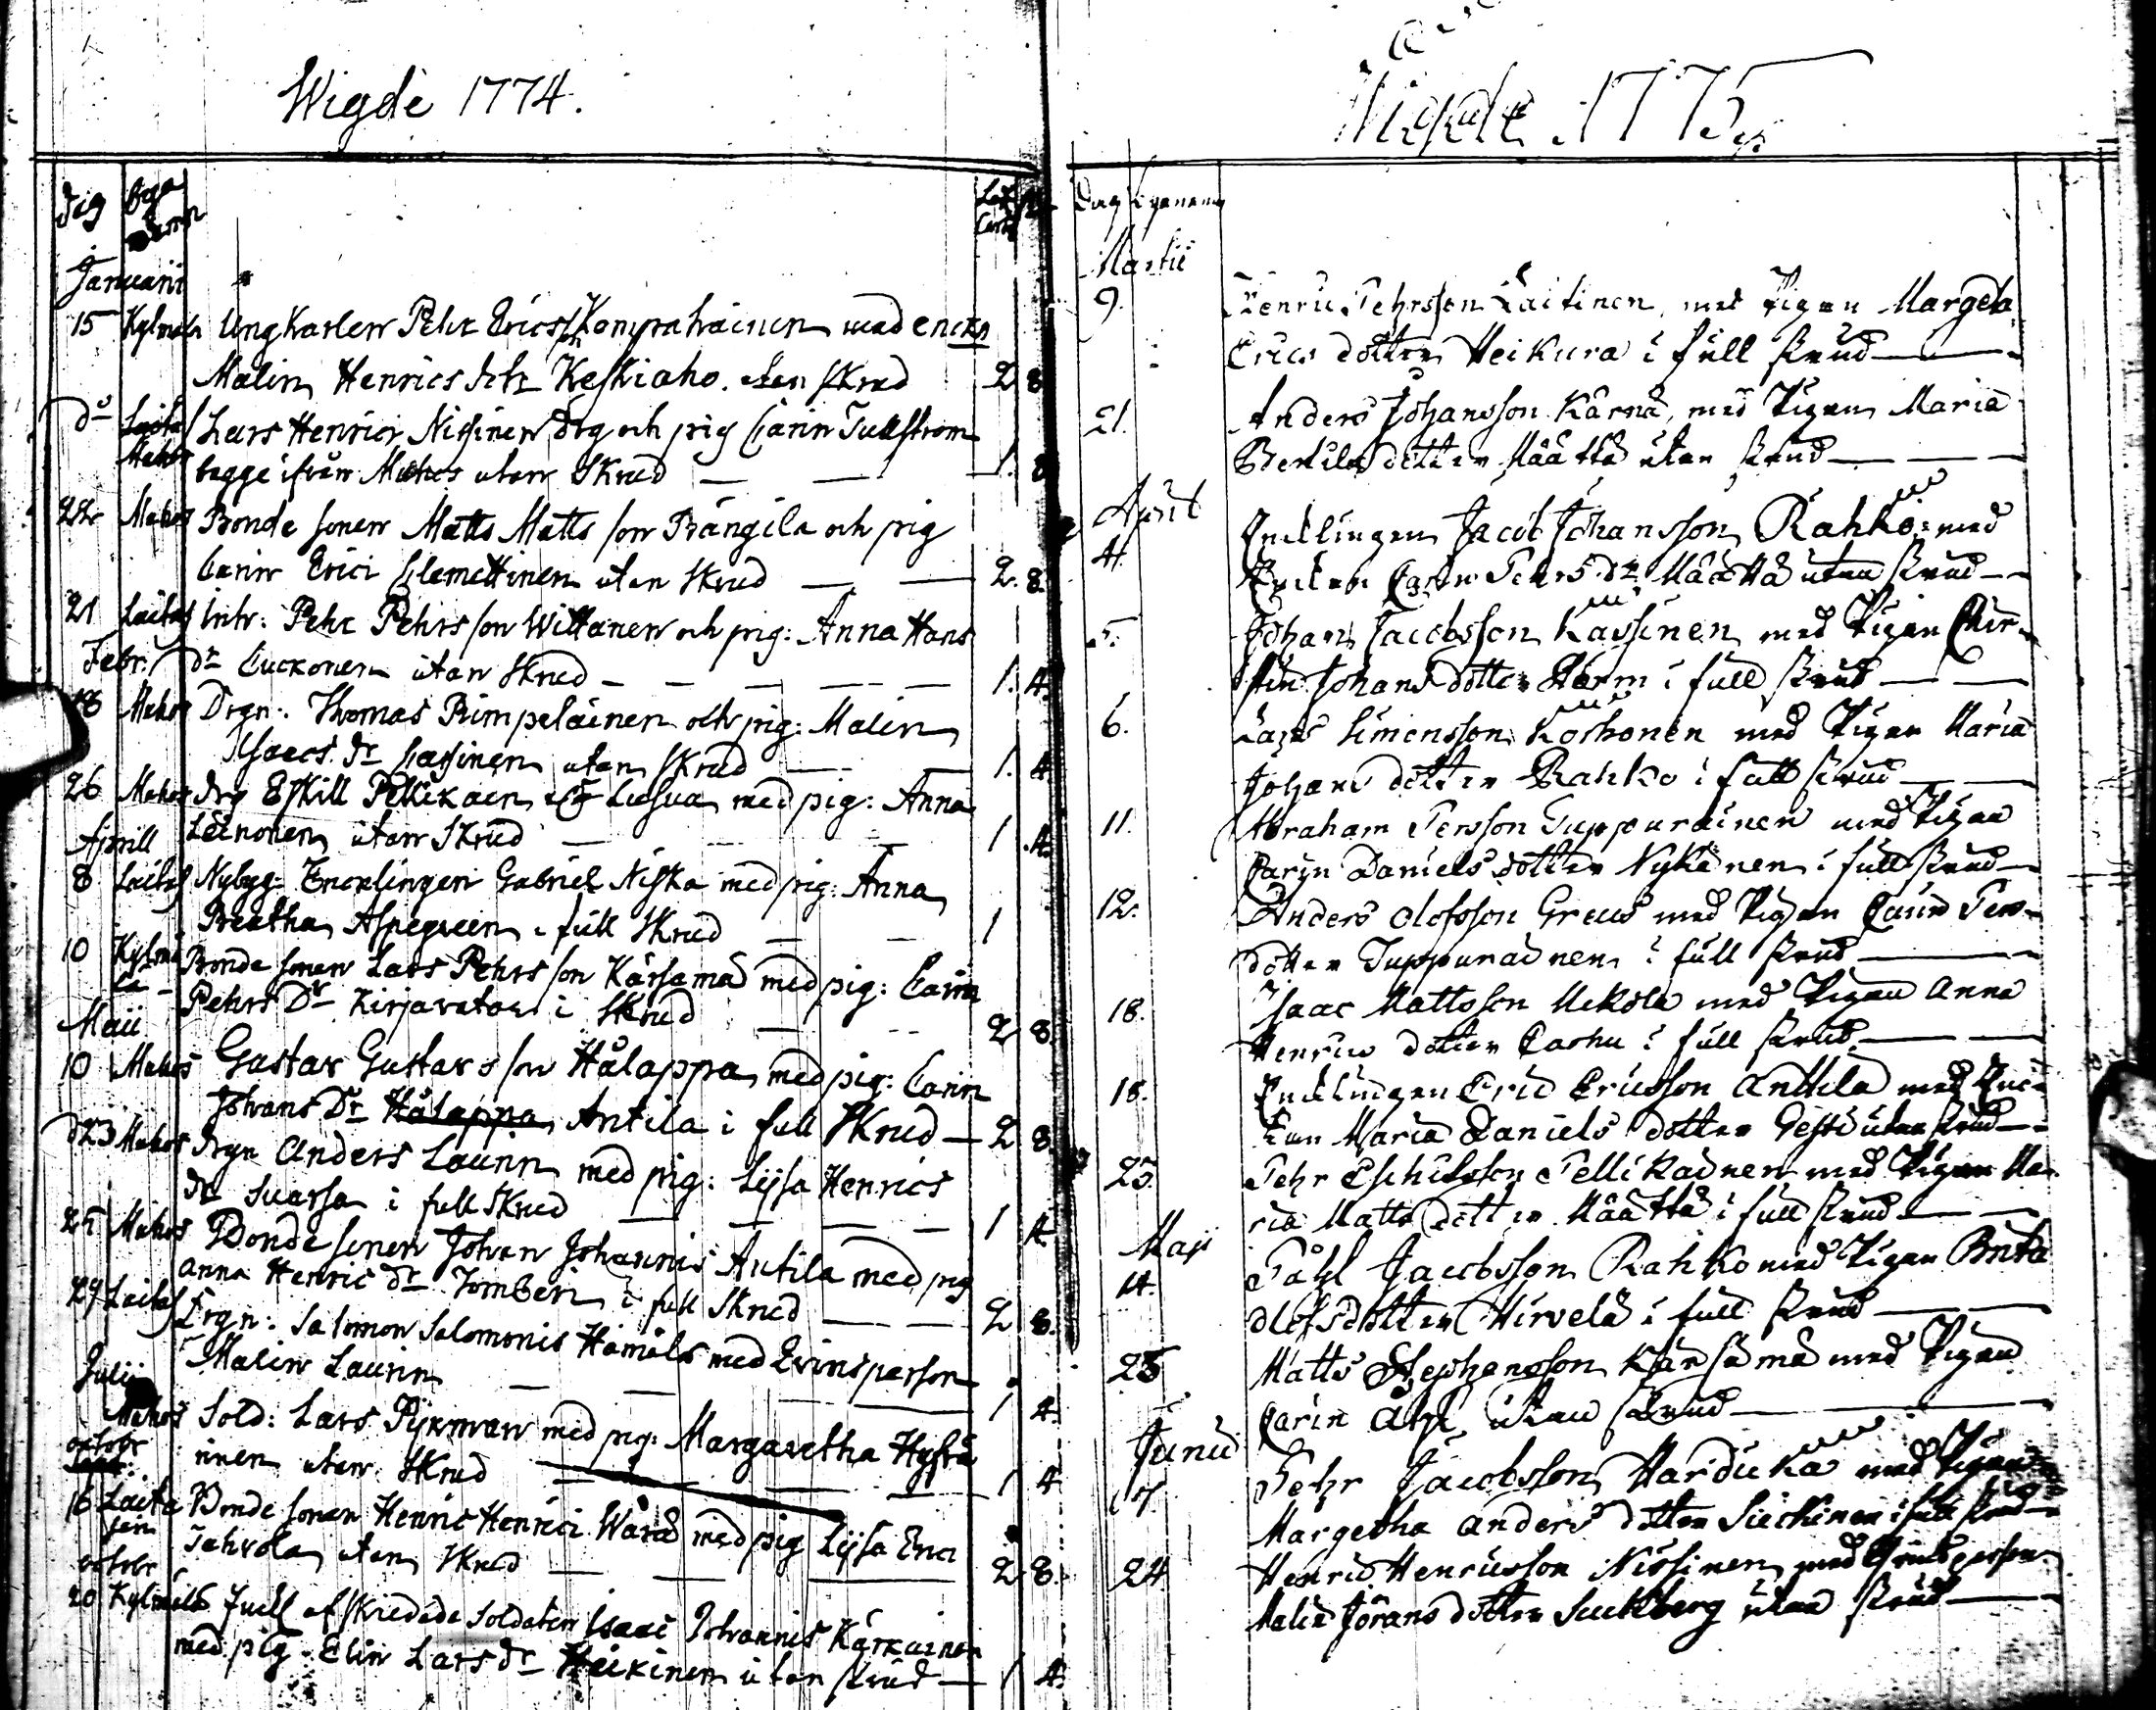 Wigde 1774.
Dag
Januarii
15 Kylmälä Ungkarlen Pehr Ericsson Kompahainen med enckn
Malin Henrics dr Keskiaho utan Skrud 2 8
do Laitas Lars Henricss Nissinen drg och pig Carin Tullstrom
Muhos bägge ifrån Muhos utan Skrud — — 1. 8
22 Muhos Bonde sonen Matts Matts son Pängilä och pig
Carin Erici Clemettinen utan Skrud — — 2. 8.
21 Laitas Inh: Pehr Pehrs son Wittanen och pig: Anna Hans
Febr. dr Cuckonen utan Skrud — — — — 1. 4.
18 Muhos Drgn: Thomas Rimpeläinen och pig: Malin
Isacs dr Cassinen utan Skrud — — 1. 4
26 Muhos drg Eskill Pellikain med pig: Anna
Aprill Leinonen utan Skrud — 1 4.
8 Laitas Nybyg: Encklingen Gabriel Niska med pig: Anna
Breatha Aspegreen i full Skrud — 1
10 Kylmä Bonde sonen Lars Pehrs son Kärsämä med pig: Carin
la - Pehrs Dr Kirjavatain i Skrud — 2 8.
Maii
10 Muhos Gustav Gustavs son Hålappa med pig: Carin
Johans Dr Hålappa Antila i full Skrud — 2 8.
d 23 Muhos drgn Anders Laurin med pig: Lijsa Henrics
dr Suassa i full Skrud — — — 1 4.
25 Muhos Bonde sonen Johan Johannis Antila med pig
Anna Henric dr Tomberi i full Skrud — — 2 8.
29 Laitas Drgn: Salomon Salomonis Hämälä med Qvinsperson
Malin Laurin — — — 1 4.
Julii
Muhos Sold: Lars Pijkman med pig: Margaretha Hyfvä
octobr rinen utan Skrud — — 1 4
16 Laita Bonde sonen Henric Henrici Wärä med pig Lijsa Erici
sari Jahvola utan Skrud — — 2 8.
octobr
20 Kylmälä Full afskiedade Soldaten Isaac Johannis Kärkäinen
med pig. Elin Lars dr Heikinen utan skrud — 1 4.
Wigde 1775
Dag
Martii
9. Henric Pehrsson Laitinen med Pigan Margeta
Erics dotter Heikura i full skrud —
21. Anders Johansson Kärnä, med Pigan Maria
Bertils dotter Määttä utan skrud — —
April Encklingen Jacob Johansson Rahko med
4. Enckan Carin Pehrs dr Määttä utan skrud —
5. Johan Jacobsson Kassinen med Pigan Chir-
stin Johans dotter Harm i full skrud — —
6. Lars Simonsson Korhonen med Pigan Maria
Johans dotter Rahko i full skrud —
11. Abraham Persson Tuppurainen med Pigan
Carin Daniels dotter Nykänen i full skrud —
12. Anders Olofsson Greus med Pigan Carin Pers-
dotter Tuppurainen i full skrud —
18. Isaac Mattsson Mekola med Pigan Anna
Henrics dotter Carhu i full skrud. —
18. Encklingen Eric Ericsson Anttila med Enc-
kan Maria Daniels dotter utan skrud —
23. Pehr Eschilsson Pellikainen med Pigan Ma-
ria Matts dotter Määttä i full skrud —
Maji Påhl Jacobsson Rahko med Pigan Brita
14. Olofs dotter Hirvelä i full skrud — —
25 Matts Stephansson Kärsämä med Pigan
Carin utan skrud —
Junii Pehr Jacobsson Harduka med Pigan
Margetha Anders dotter i full skrud —
24 Henric Henricsson Nissinen med Qvinsperson
Malin Jörans dotter Suckberg utan skrud —